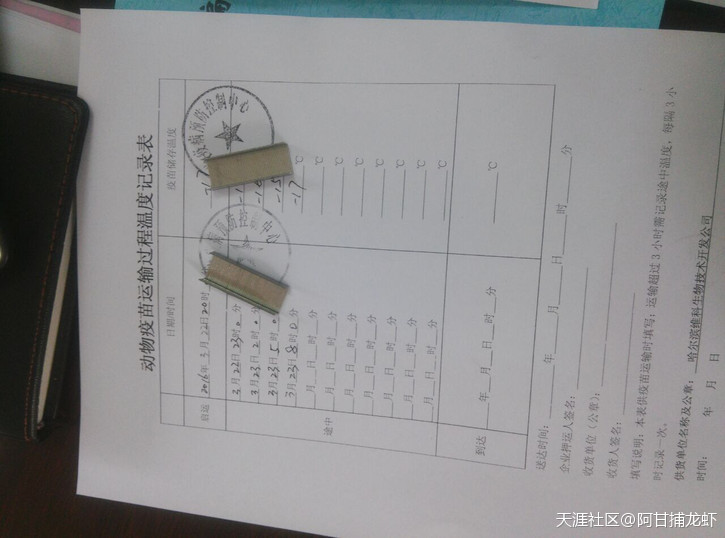 动物疫苗运输过程温度记录表
日期/时间 疫苗储存温度
启运 2016年3月22日20时
途中 3月22日23时0分
3月23日 时0分
3月23日5时0 -15
3月23日8时0分 -17℃
月 日 时 分 ℃
月 日 时 分 ℃
月 日 时 分 ℃
月 日 时 分 ℃
月 日 时 分 ℃
月 日 时 分 ℃
月 日 时 分 ℃
到达 年 月 日 时 分 ℃
送达时间: 年 月 日 时 分
企业押运人签名:
收货单位(公章):
收货人签名:
填写说明:本表供疫苗运输时填写;运输超过3小时需记录途中温度,每隔3小
时记录一次。
供货单位名称及公章: 哈尔滨维科生物技术开发公司
时间: 年 月 日
天涯社区@阿甘捕龙虾